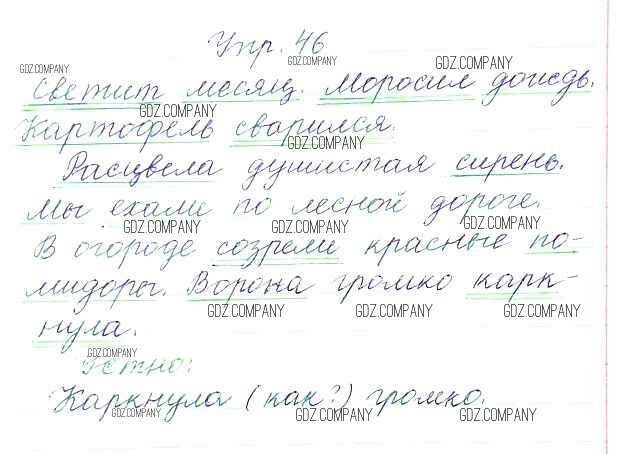 Упр. 46
GDZ.COMPANY GDZ.COMPANY
Светит месяц. Моросил дождь.
GDZ.COMPANY GDZ.COMPANY
Картофель сварился.
GDZ.COMPANY
Расцвела душистая сирень.
Мы ехали по лесной дороге.
GDZ.COMPANY GDZ.COMPANY GDZ.COMPANY
В огороде созрели красные по-
мидоры. Ворона громко карк-
GDZ.COMPANY GDZ.COMPANY GDZ.COMPANY
нула.
GDZ.COMPANY
Устно:
Каркнула (как?) громко.
GDZ.COMPANY GDZ.COMPANY GDZ.COMPANY